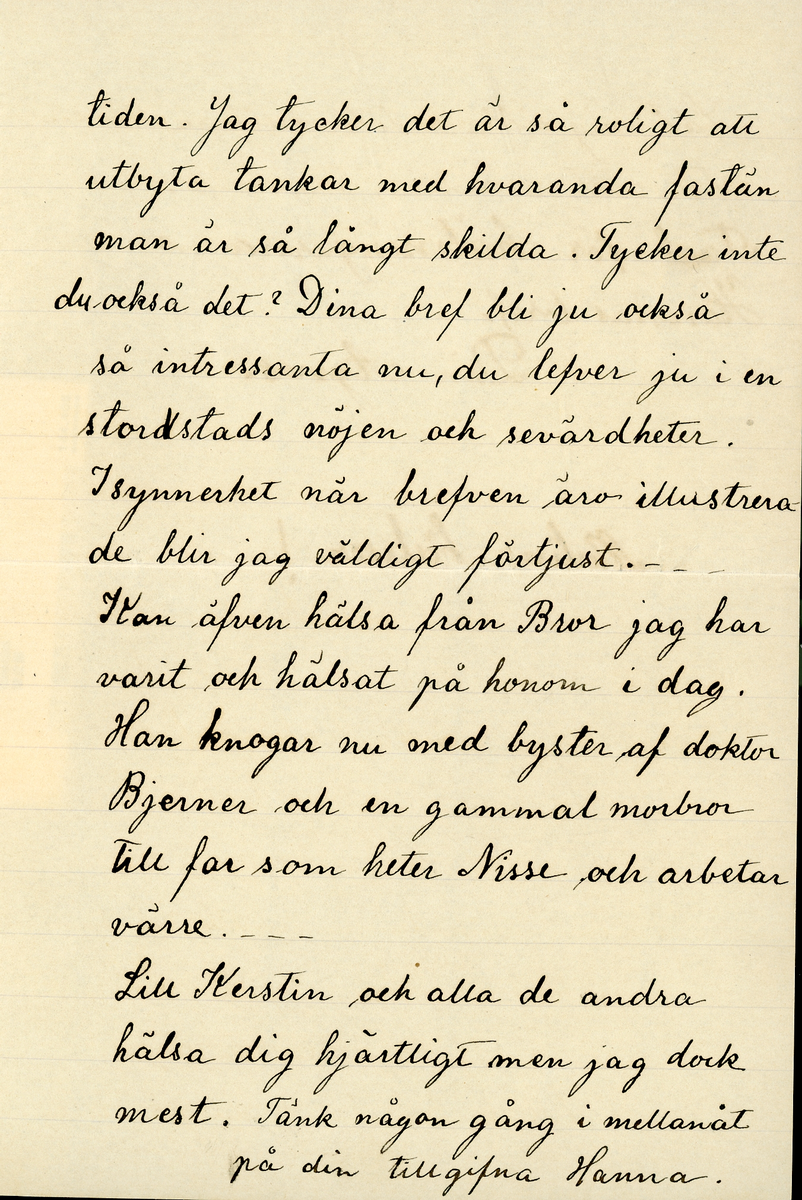 tiden. Jag tycker det är så roligt att
utbyta tankar med hvaranda fastän
man är så långt skilda. Tycker inte
du också det? Dina bref bli ju också
så intressanta nu, du lefver ju i en
stordstads nöjen och sevärdheter.
Isynnerhet när brefven äro illustrera-
de blir jag väldigt förtjust. - - -
Kan äfven hälsa från Bror jag har
varit och hälsat på honom i dag.
Han knogar nu med byster af doktor
Bjerner och en gammal morbror
till far som heter Nisse och arbetar
värre. - - -
Lill Kerstin och alla de andra
hälsa dig hjärtligt men jag dock
mest. Tänk någon gång i mellanåt
på din tillgifna Hanna.